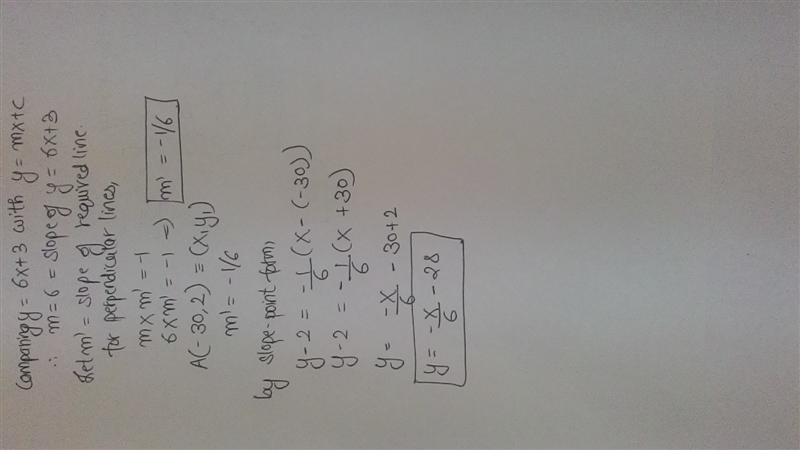 Comparing y = 6x+3 with y = mx+c
∴ m = 6 = slope of y = 6x+3
Let m' = slope of required line.
for perpendicular lines,
m x m' = -1
6 x m' = -1 => m' = -1/6
A(-30, 2) = (x₁ y₁)
m' = -1/6
by slope-point-form,
y - 2 = -1/6 (x - (-30))
y - 2 = -1/6 (x + 30)
y = -x/6 - 30+2
y = -x/6 - 28